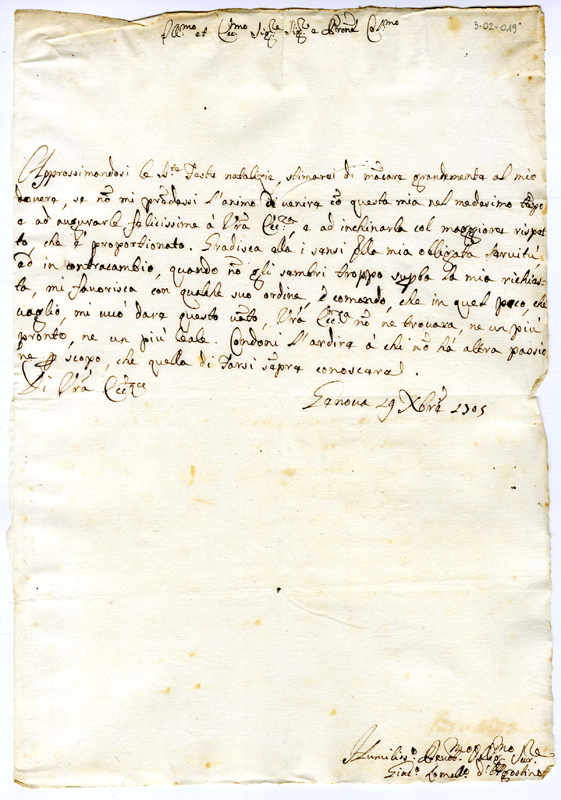 Ill.mo et Ecc.mo Sig.re Sig.re e Pron Col.mo
3-02-019
Approssimandosi le S.te Feste natalizie, stimarei di mãcare grandemente al mio
dovere, se nõ mi prẽdessi l'animo di venire cõ questa mia nel medesimo tẽpo
e ad augurarle felicissime à Vrã Ecc.za e ad inchinarla col maggiore rispet
to che è proportionato. Gradisca ella i sensi della mia obligata servitù
ed in contracambio, quando nõ gli sembri troppo la mia richies
ta, mi favorisca con qualche suo ordine, e comando, che in quel poco, che
vaglio mi può dare questo vãto, Vrã Ecc.za nõ ne trovarà, ne un più
pronto, ne un più leale. Condoni l'ardire à chi nõ hà altra passio
ne scopo, che quella di farsi sẽpre conoscere
Di Vrã Ecc.za
Genova 19 Xbre 1705
Humiliss.o Devot.mo Oblig.mo Ser.
Giac.o Lomell.o d' Agostino